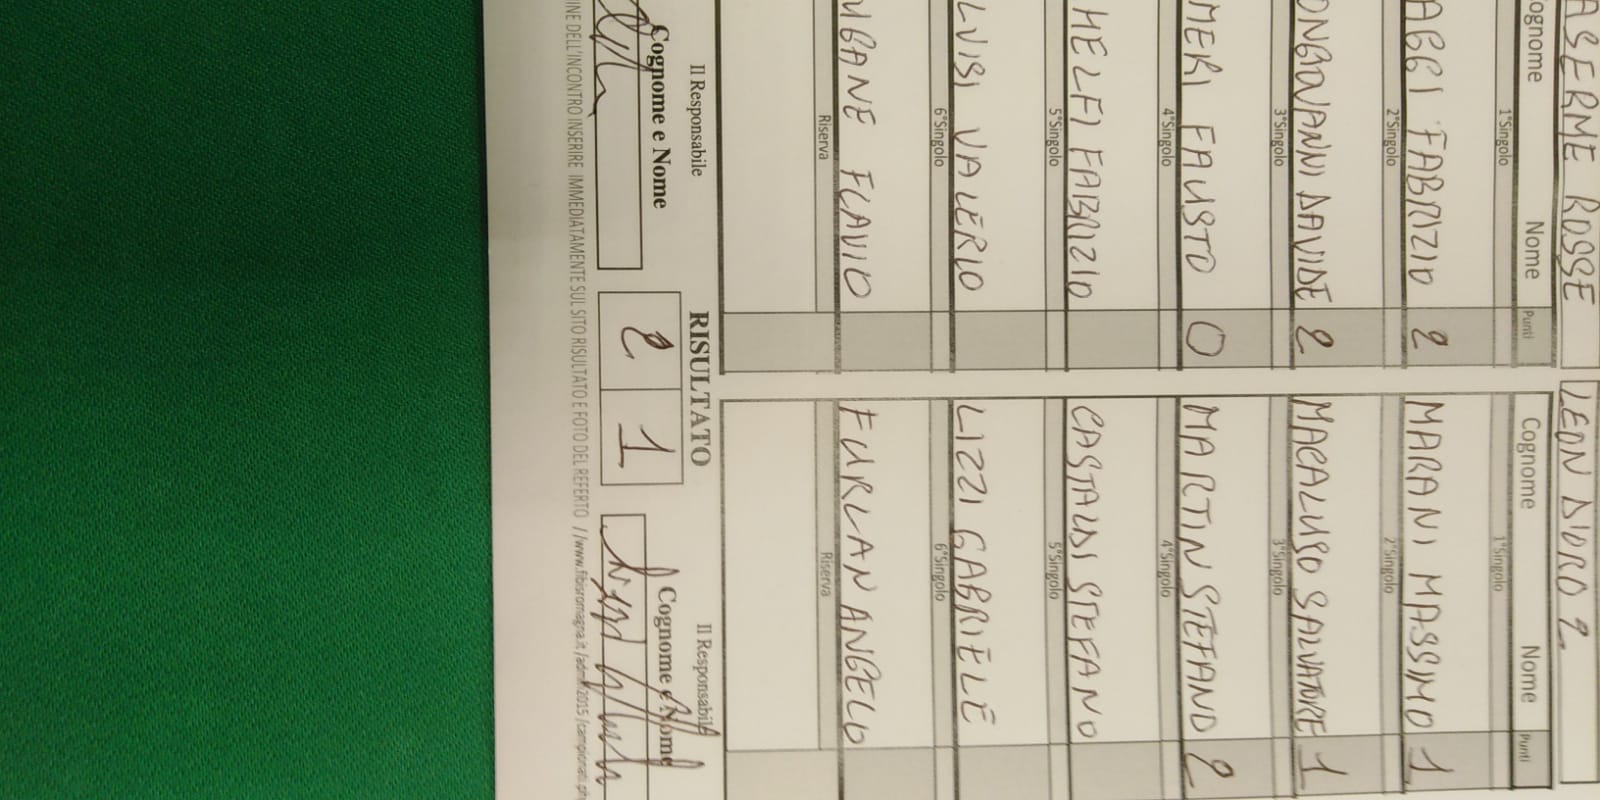 ASERME ROSSE LEON D'ORO 2
Cognome Nome Punti Cognome Nome Punti
1°Singolo 1°Singolo
AGGI FABRIZIO 2 MARANI MASSIMO 1
2°Singolo 2°Singolo
ONGROVANNI DAVIDE 2 MACALUSO SALVATORE 1
3°Singolo 3°Singolo
MERI FAUSTO 0 MARTIN STEFANO 2
4°Singolo 4°Singolo
HELFI FABRIZIO CASTALDI STEFANO
5°Singolo 5°Singolo
LUISI VALERIO LIZZI GABRIELE
6°Singolo 6°Singolo
UGANE FLAVIO FURLAN ANGELO
Riserva Riserva
Il Responsabile RISULTATO Il Responsabile
Cognome e Nome 2 1 Cognome e Nome
INE DELL'INCONTRO INSERIRE IMMEDIATAMENTE SUL SITO RISULTATO E FOTO DEL REFERTO //www.fibisromagna.it/admin2015/campionati.ph